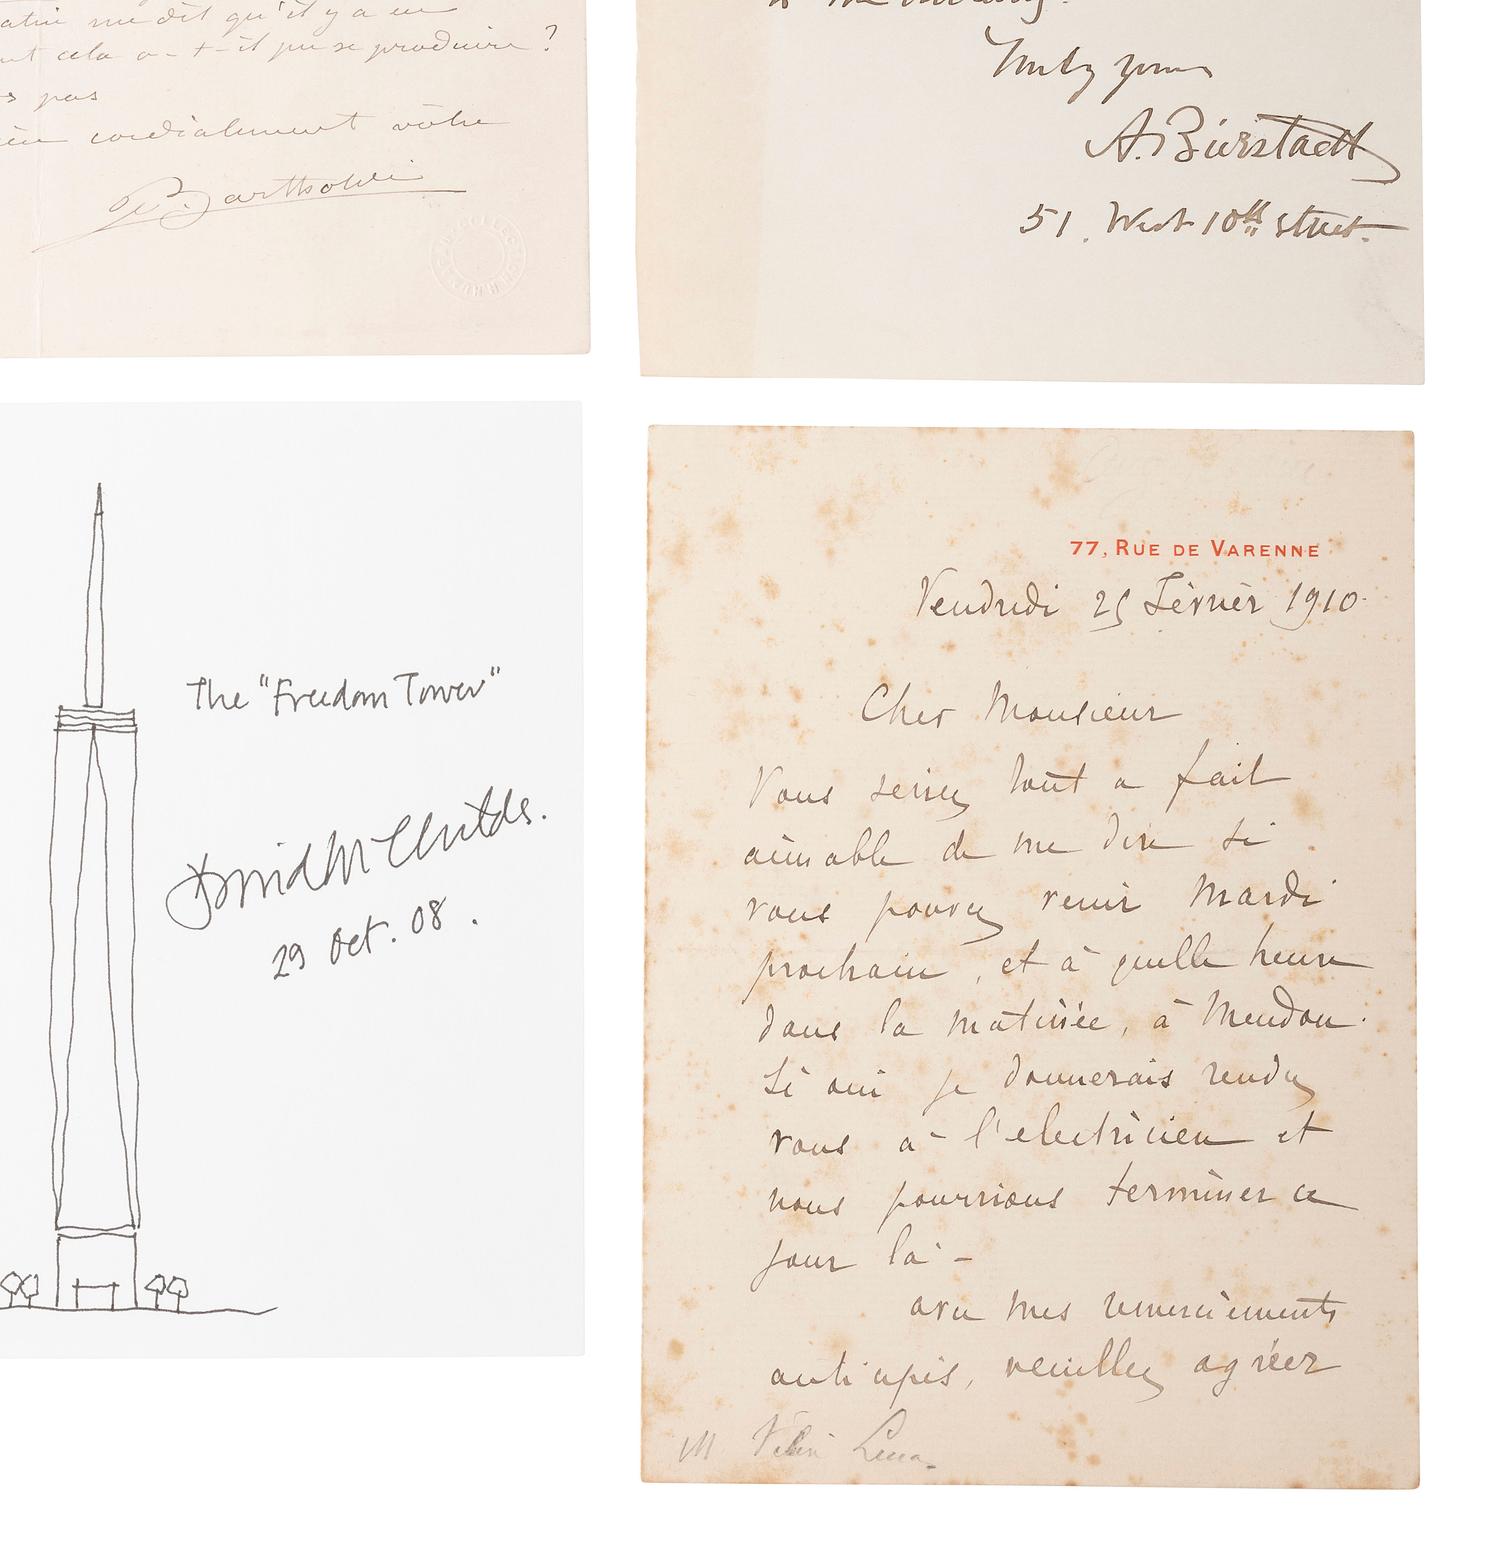 me dit qu'il y a eu
cela a-t-il pu se produire?
pas
cordialement vôtre
Bartholdi
Truly yours
A. Bierstadt
51. West 10th Street.
The "Freedom Tower"
David M Childs.
29 Oct. 08.
77, RUE DE VARENNE
Vendredi 25 Février 1910
Cher Monsieur
Vous seriez tout a fait
aimable de me dire si
vous pouvez venir Mardi
prochain, et à quelle heure
dans la matinée, à Meudon.
Si oui je donnerais rendez
vous a l'electricien et
nous pourrions terminer ce
jour là -
avec mes remerciements
anticipés, veuillez agréer
M